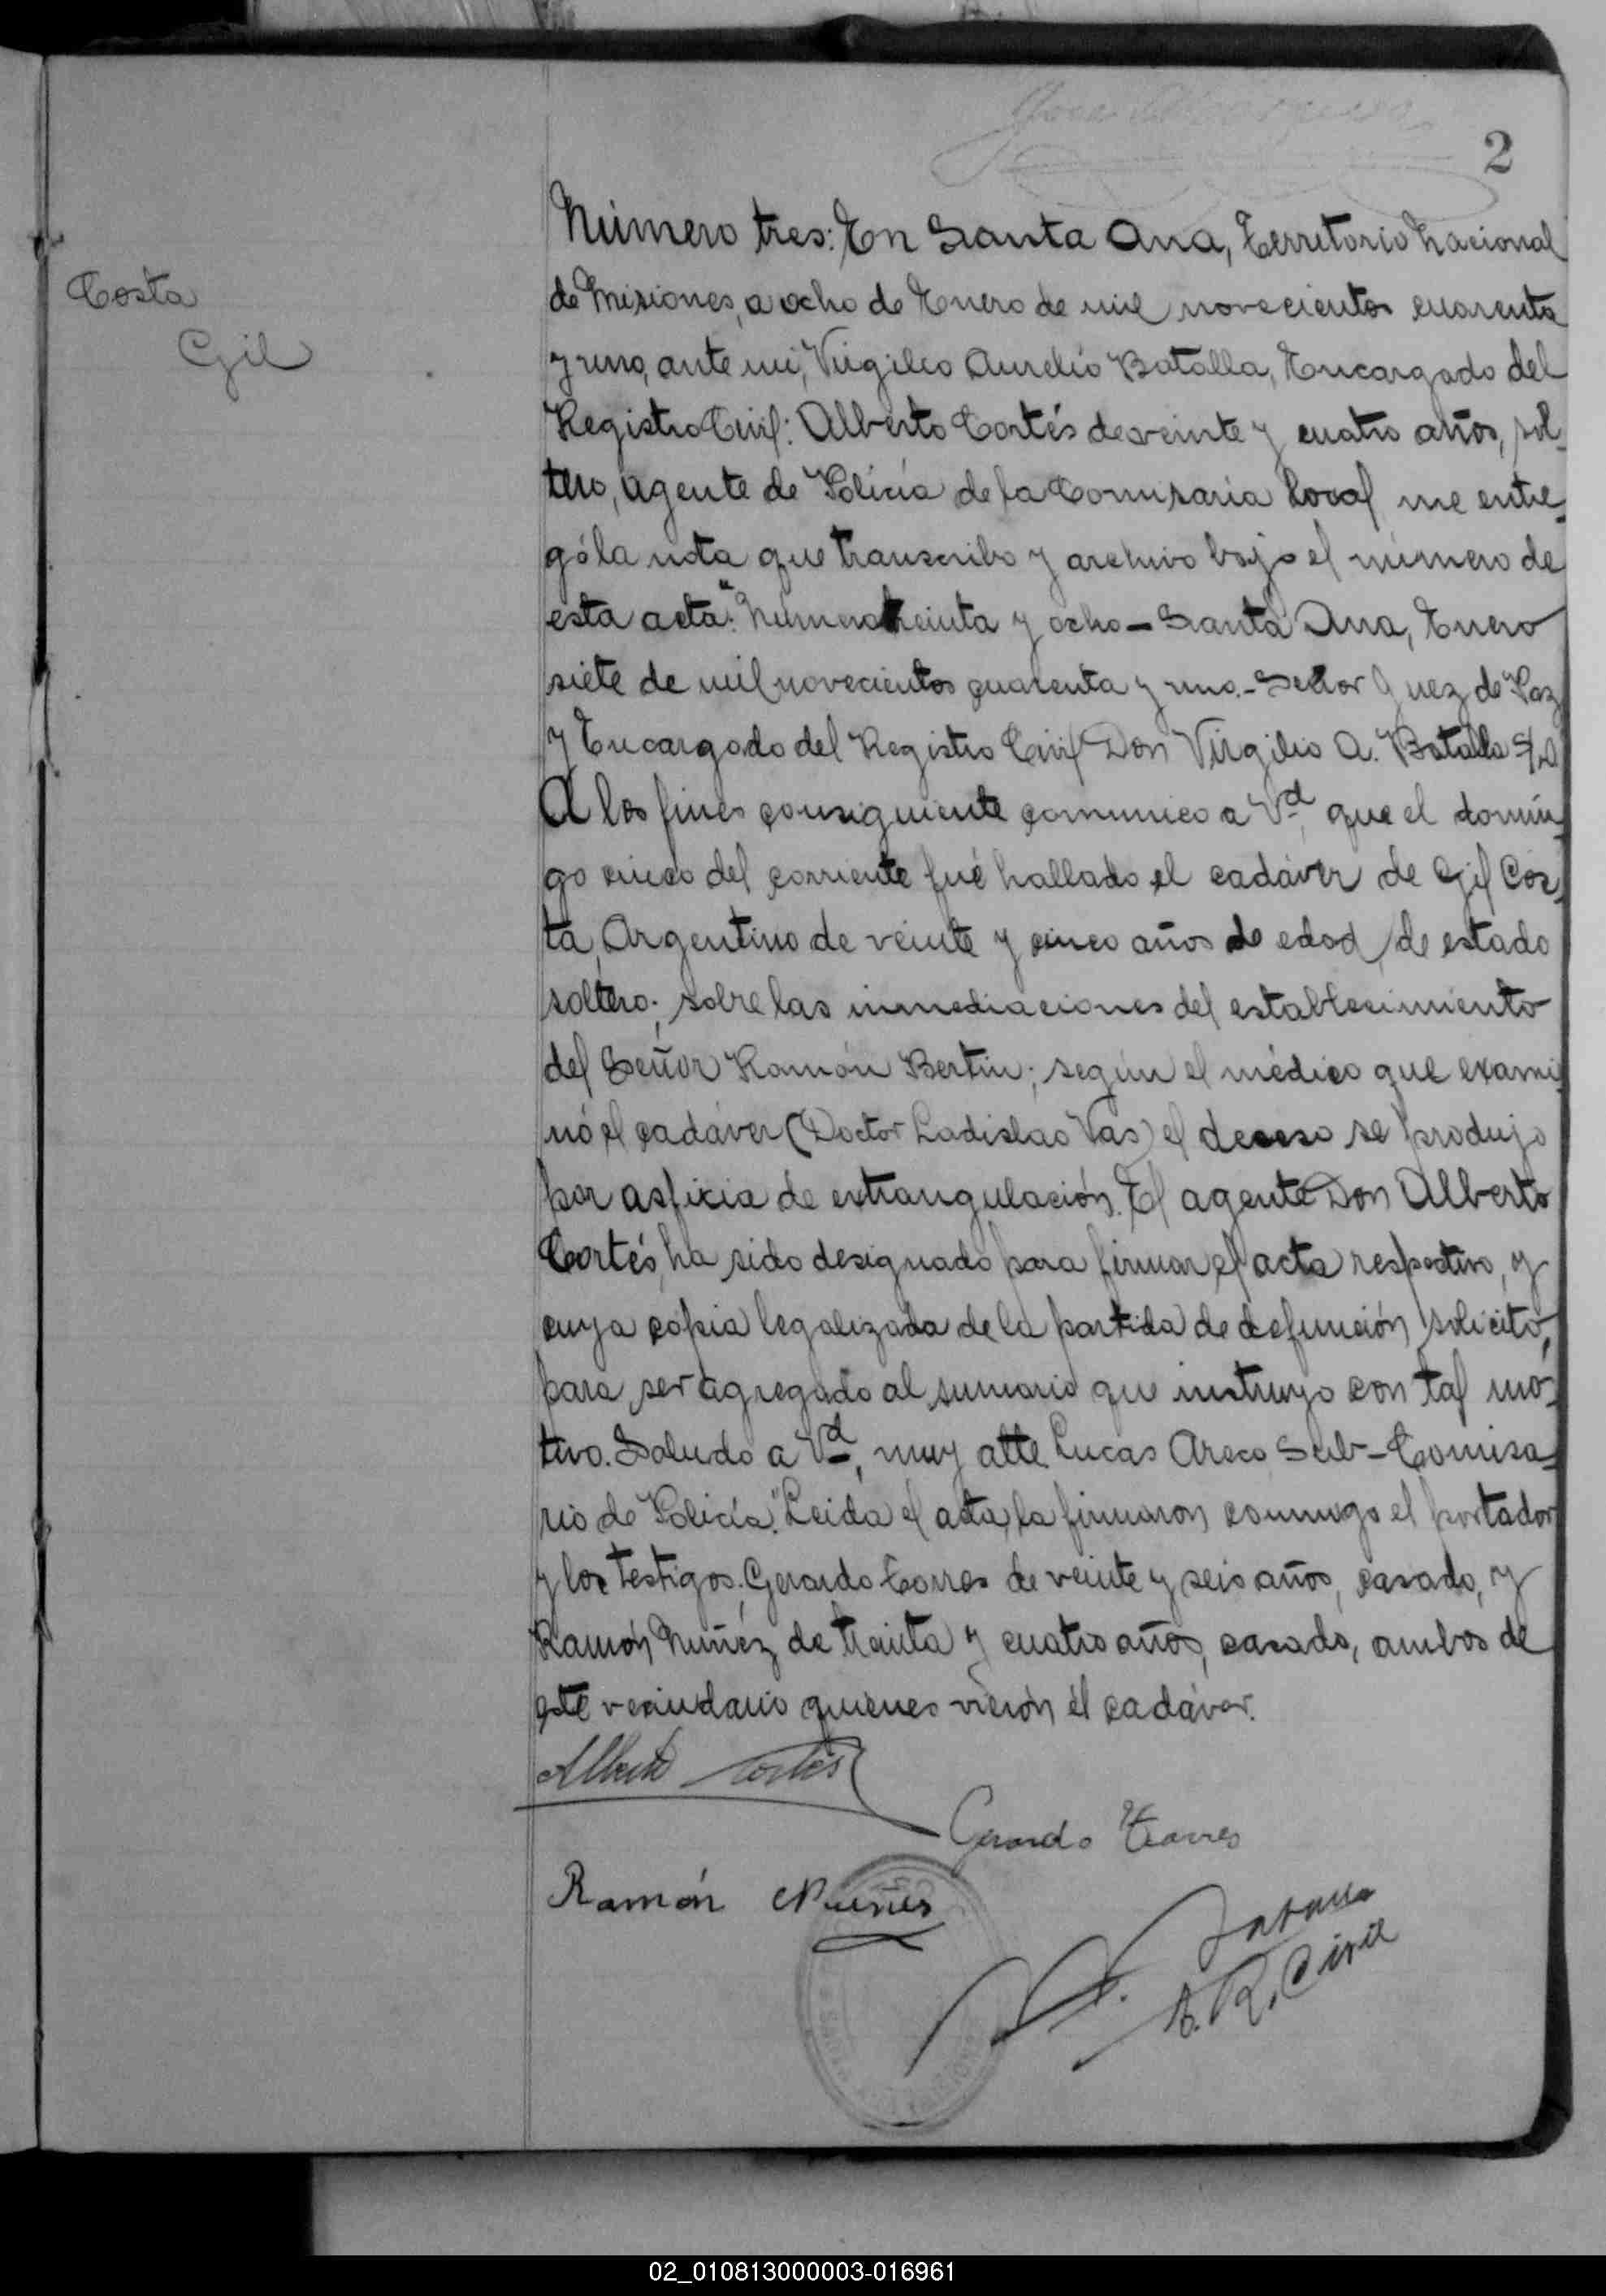 2
Costa
Gil
Número tres: En Santa Ana, Territorio Nacional
de Misiones, a ocho de Enero de mil novecientos cuarenta
y uno, ante mi, Virgilio Aurelio Batalla, Encargado del
Registro Civil: Alberto Cortés de veinte y cuatro años, sol-
tero, agente de Policía de la Comisaria local me entre-
gó la nota que transcribo y archivo bajo el número de
esta acta: "Número treinta y ocho - Santa Ana, Enero
siete de mil novecientos cuarenta y uno.- Señor Juez de Paz
y Encargado del Registro Civil Don Virgilio A. Batalla S/D
A los fines consiguiente comunico a Vd, que el domin-
go cinco del corriente fué hallado el cadáver de Gil Cos-
ta, Argentino de veinte y cinco años de edad, de estado
soltero; sobre las inmediaciones del establecimiento
del Señor Ramón Bertin; según el médico que exami-
nó el cadáver (Doctor Ladislao Vas) el deceso se produjo
por asfixia de extrangulación. El agente Don Alberto
Cortés, ha sido designado para firmar el acta respectivo, y
cuya copia legalizada de la partida de defunción solicito,
para ser agregado al sumario que instruyo con tal mo-
tivo. Saludo a Vd, muy atte. Lucas Areco Sub-Comisa-
rio de Policía." Leida el acta, la firmaron conmigo el portador
y los testigos: Gerardo Torres de veinte y seis años, casado, y
Ramón Nuñéz de treinta y cuatro años, casado, ambos de
este vecindario quienes vieron él cadáver.
Alberto Cortés
Gerardo Torres
Ramón Nuñes
Batalla
R. Civil
02_010813000003-016961